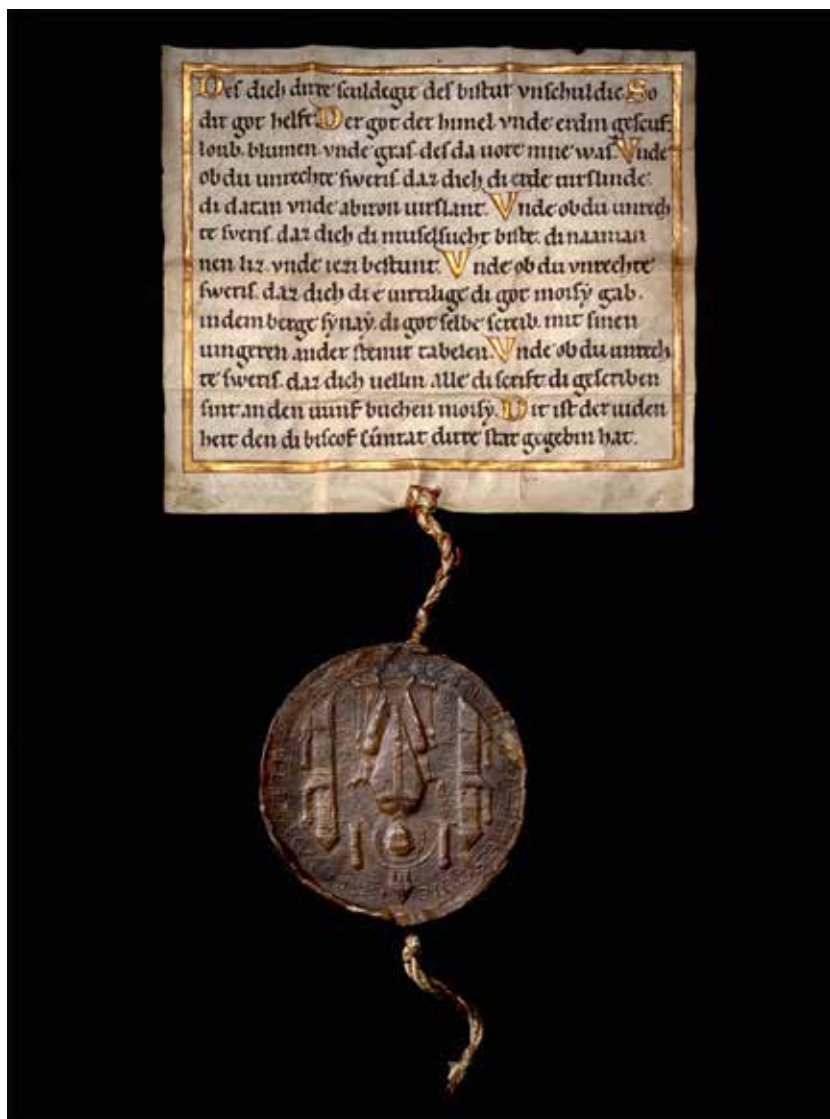 Des dich dirre sculdegit des bistur vnschuldic. So
dir got helfe. Der got der himel vnde erdin gescuf.
loub. blumen. vnde gras. des da uore nine was. Vnde
ob du unrechte sweris. daz dich di erde uirslinde.
di datan vnde abiron uirslant. Vnde ob du unrech
te sveris. daz dich di muselsucht biste. di naaman
nen liz. vnde iezi bestunt. Vnde ob du vnrechte
sweris. daz dich di e uirtilige di got moisy gab.
in dem berge synay. di got selbe screib. mit sinen
uingeren ander steinir tabelen. Vnde ob du unrech
te sweris. daz dich uellin alle di scrift. di gescriben
sint. an den uunf buchen moisy. Dit ist der iuden
heit den di biscof cunrat dirre stat gegebin hat.